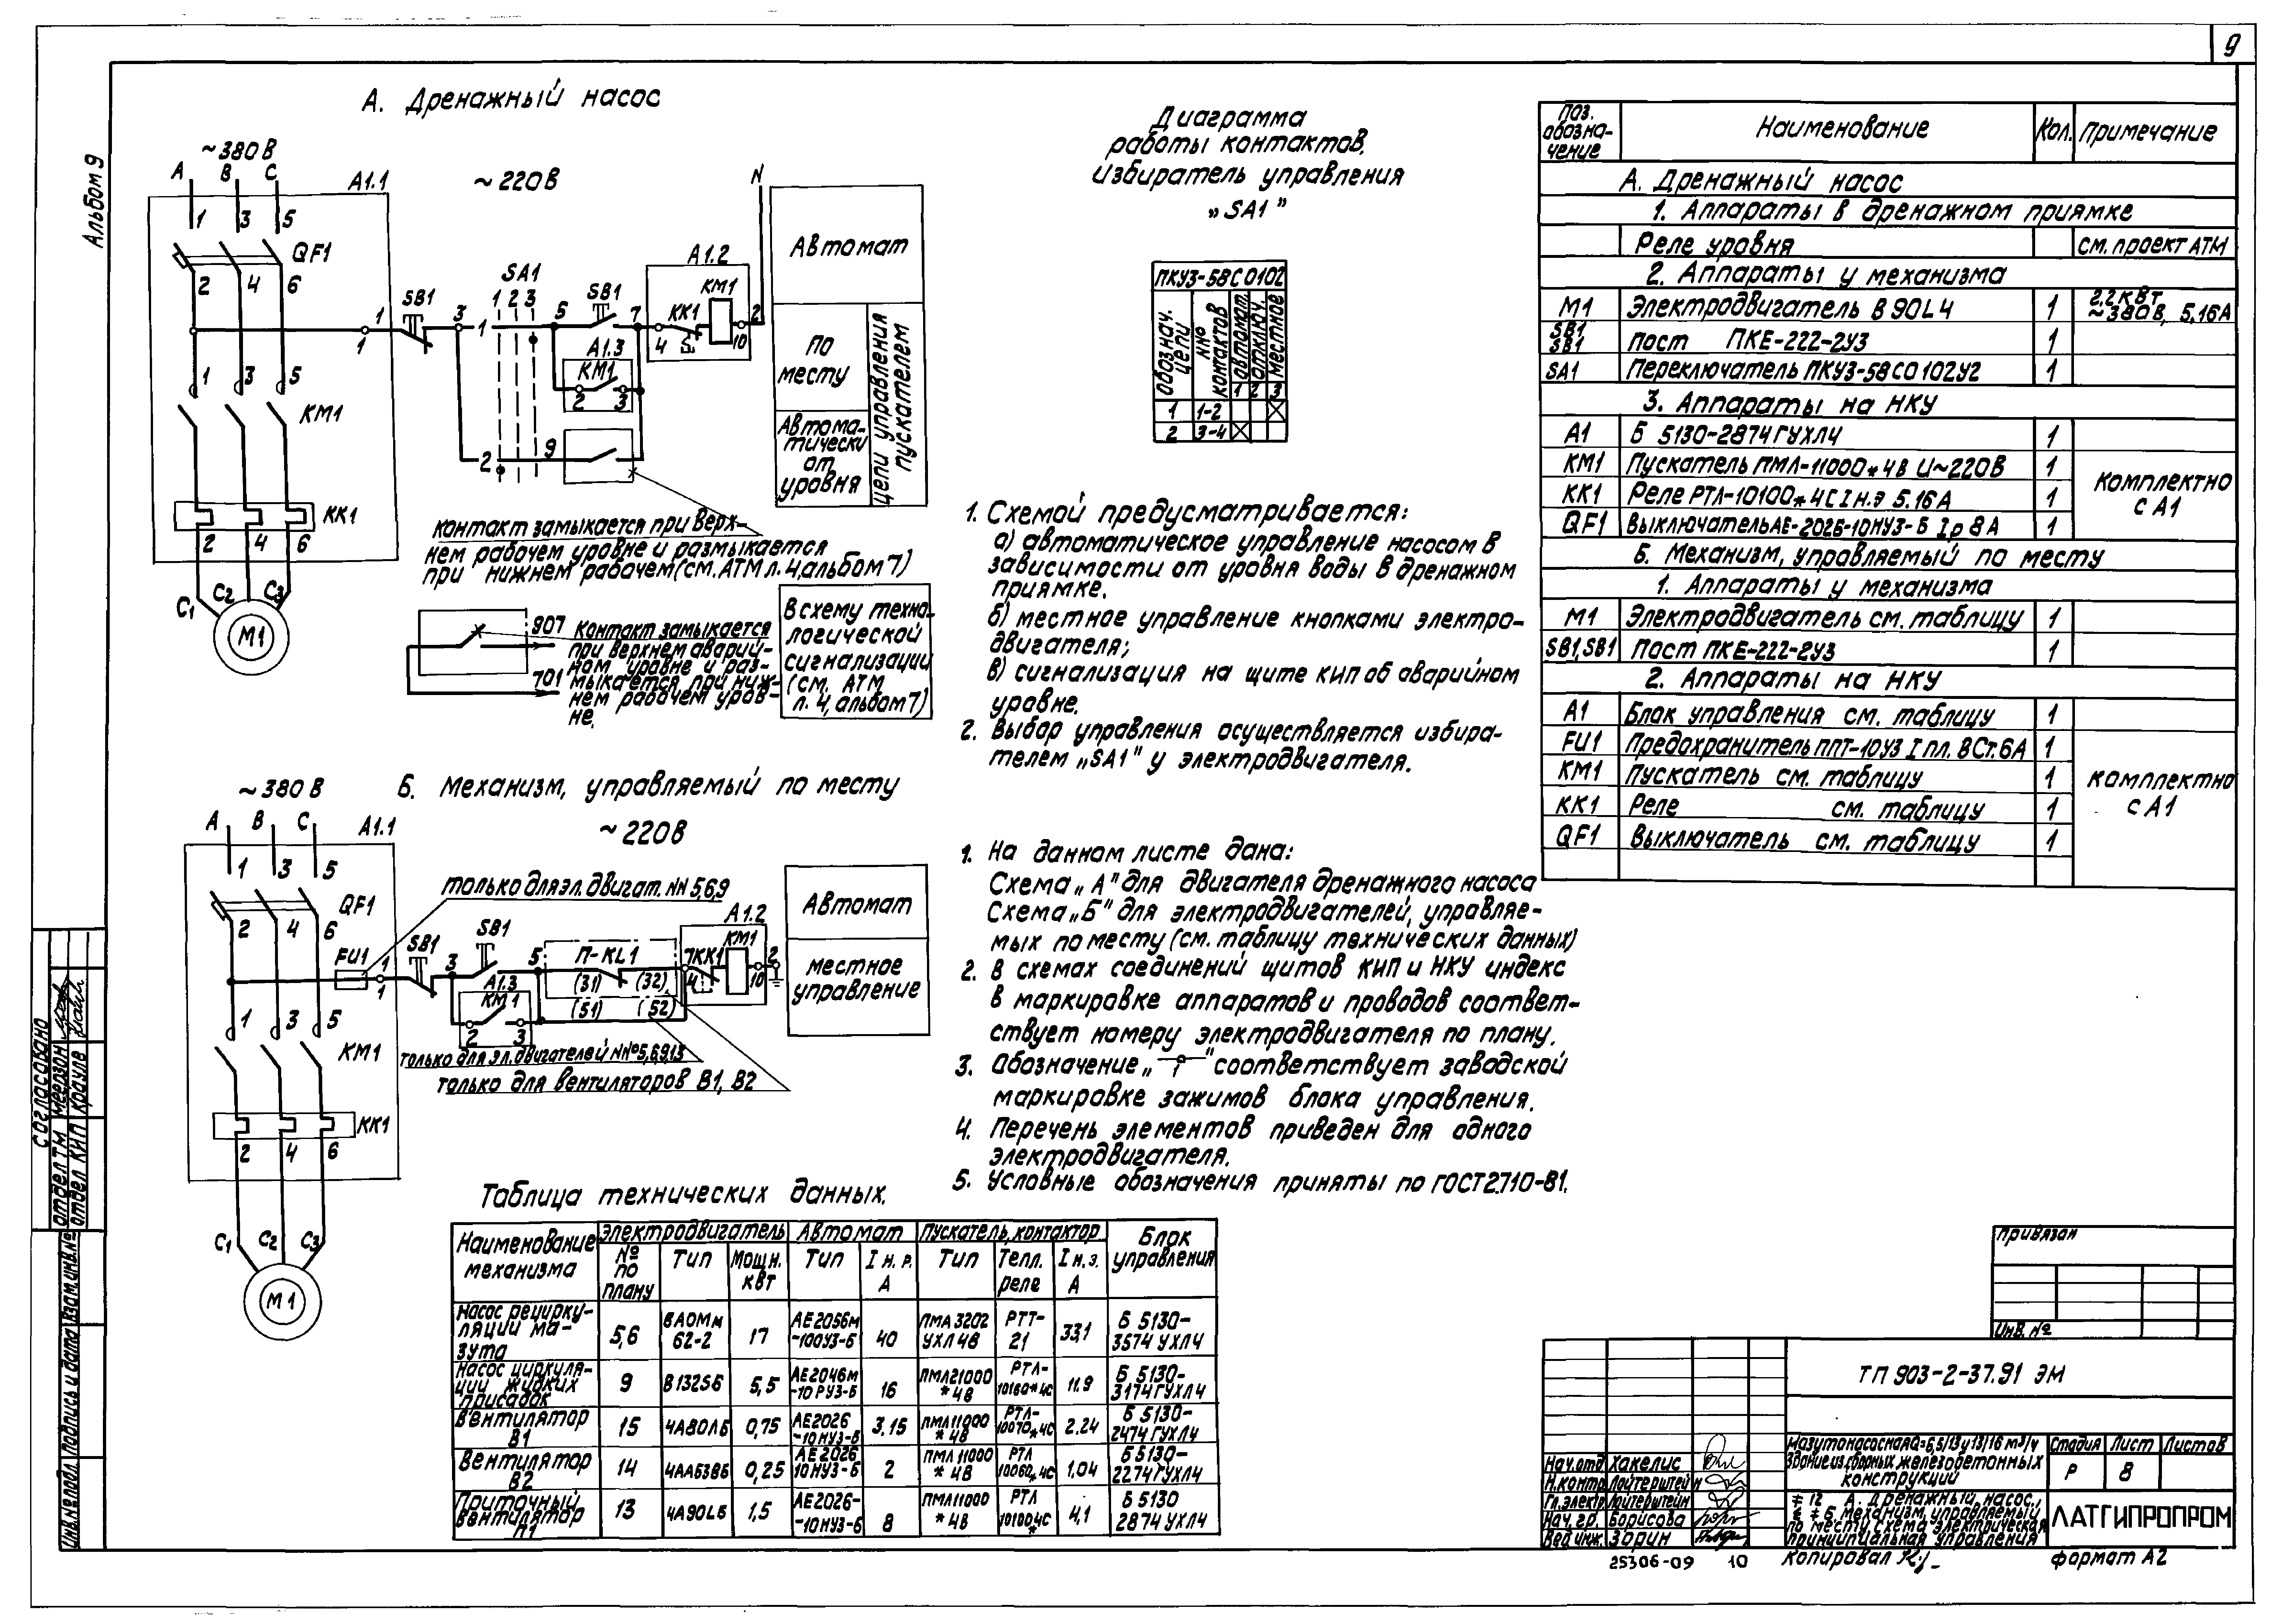 9
Альбом 9
А. Дренажный насос
~380 В
А В С
А1.1
1 3 5
QF1
2 4 6
1 3 5
КМ1
КК1
2 4 6
С1 С2 С3
М1
~220В
N
1
1
SB1
3
1
SA1
1 2 3
5
SB1
7
А1.2
КК1
КМ1
4
10
2
А1.3
КМ1
2 3
2
9
Автомат
По
месту
Автома-
тически
от
уровня
Цепи управления
пускателем
Контакт замыкается при верх-
нем рабочем уровне и размыкается
при нижнем рабочем (см. АТМ л. 4, альбом 7)
907
701
Контакт замыкается
при верхнем аварий-
ном уровне и раз-
мыкается при ниж-
нем рабочем уров-
не.
В схему техно-
логической
сигнализации
(см. АТМ
л. 4, альбом 7)
Б. Механизм, управляемый по месту
~380 В
А В С
А1.1
1 3 5
QF1
2 4 6
FU1
1 3 5
КМ1
КК1
2 4 6
С1 С2 С3
М1
~220В
только для эл. двигат. NN 5,6,9
1
1
SB1
3
SB1
5
П-KL1
(31) (32)
(51) (52)
7
КК1
4
А1.2
КМ1
10
2
А1.3
КМ1
2 3
Автомат
местное
управление
только для эл. двигателей N№5,6,9,13
только для вентиляторов В1, В2
Диаграмма
работы контактов,
избиратель управления
„SA1”
ПКУ3-58С 0102
Обознач.
цепи
контактов
Автомат.
Отключ.
Местное
1 2 3
1 1-2 X
2 3-4 X
1. Схемой предусматривается:
а) автоматическое управление насосом в
зависимости от уровня воды в дренажном
приямке.
б) местное управление кнопками электро-
двигателя;
в) сигнализация на щите КИП об аварийном
уровне.
2. Выбор управления осуществляется избира-
телем „SA1” у электродвигателя.
1. На данном листе дана:
Схема „А” для двигателя дренажного насоса
Схема „Б” для электродвигателей, управляе-
мых по месту (см. таблицу технических данных)
2. В схемах соединений щитов КИП и НКУ индекс
в маркировке аппаратов и проводов соответ-
ствует номеру электродвигателя по плану.
3. Обозначение „ ” соответствует заводской
маркировке зажимов блока управления.
4. Перечень элементов приведен для одного
электродвигателя.
5. Условные обозначения приняты по ГОСТ 2.710-81.
Поз. обозна- чение Наименование Кол. Примечание
А. Дренажный насос
1. Аппараты в дренажном приямке
Реле уровня см. проект АТМ
2. Аппараты у механизма
М1 Электродвигатель В 90L4 1 2,2 кВт ~380В, 5,16А
SB1 SB1 Пост ПКЕ-222-2У3 1
SA1 Переключатель ПКУ3-58С0102У2 1
3. Аппараты на НКУ
А1 Б 5130-2874 ГУХЛ4 1
КМ1 Пускатель ПМЛ-11000*4В U~220В 1
КК1 Реле РТЛ-10100*4С Iн.э 5.16А 1
QF1 Выключатель АЕ-2026-10НУ3-Б Iр 8А 1
Комплектно
с А1
Б. Механизм, управляемый по месту
1. Аппараты у механизма
М1 Электродвигатель см. таблицу 1
SB1,SB1 Пост ПКЕ-222-2У3 1
2. Аппараты на НКУ
А1 Блок управления см. таблицу 1
FU1 Предохранитель ППТ-10У3 I пл. вст. 6А 1
КМ1 Пускатель см. таблицу 1
КК1 Реле см. таблицу 1
QF1 Выключатель см. таблицу 1
Комплектно
с А1
Таблица технических данных.
Наименование механизма Электродвигатель Автомат Пускатель, контактор Блок управления
№ по плану Тип Мощн. кВт Тип I н. р. А Тип Тепл. реле I н. э. А
Насос рецирку- ляции ма- зута 5,6 ВАОМм 62-2 17 АЕ2056м -100У3-Б 40 ПМА 3202 УХЛ 4В РТТ- 21 33,1 Б 5130- 3574 УХЛ4
Насос циркуля- ции жидких присадок 9 В132S6 5,5 АЕ2046м -10РУ3-Б 16 ПМЛ21000 *4В РТЛ- 10160*4С 11.9 Б 5130- 3174 ГУХЛ4
Вентилятор В1 15 4А80А6 0,75 АЕ2026 -10НУ3-Б 3,15 ПМЛ11000 *4В РТЛ- 10070*4С 2.24 Б 5130- 2474 ГУХЛ4
Вентилятор В2 14 4АА63В6 0,25 АЕ2026 10НУ3-Б 2 ПМЛ11000 *4В РТЛ 10060*4С 1,04 Б 5130- 2274 ГУХЛ4
Приточный вентилятор П1 13 4А90L6 1,5 АЕ2026- -10НУ3-Б 8 ПМЛ11000 *4В РТЛ 10100*4С 4,1 Б 5130 2874 УХЛ4
Привязан
Инв. №
ТП 903-2-37.91 ЭМ
Мазутонасосная Q=6,5/13 и 13/16 м³/ч
Здание из сборных железобетонных
конструкций
Стадия Лист Листов
Р 8
Нач. отд Хакелис
Н. контр Лойтерштейн
Гл. электр Лойтерштейн
Нач. гр. Борисова
Вед инж. Зорин
#12 А. Дренажный насос,
Б. механизм, управляемый
по месту. Схема электрическая
принципиальная управления
ЛАТГИПРОПРОМ
25306-09 10
Копировал
формат А2
Согласовано
Отдел ТМ Меерзон
Отдел КИП Крауле
Инв.№подл. Подпись и дата Взам.инв.№